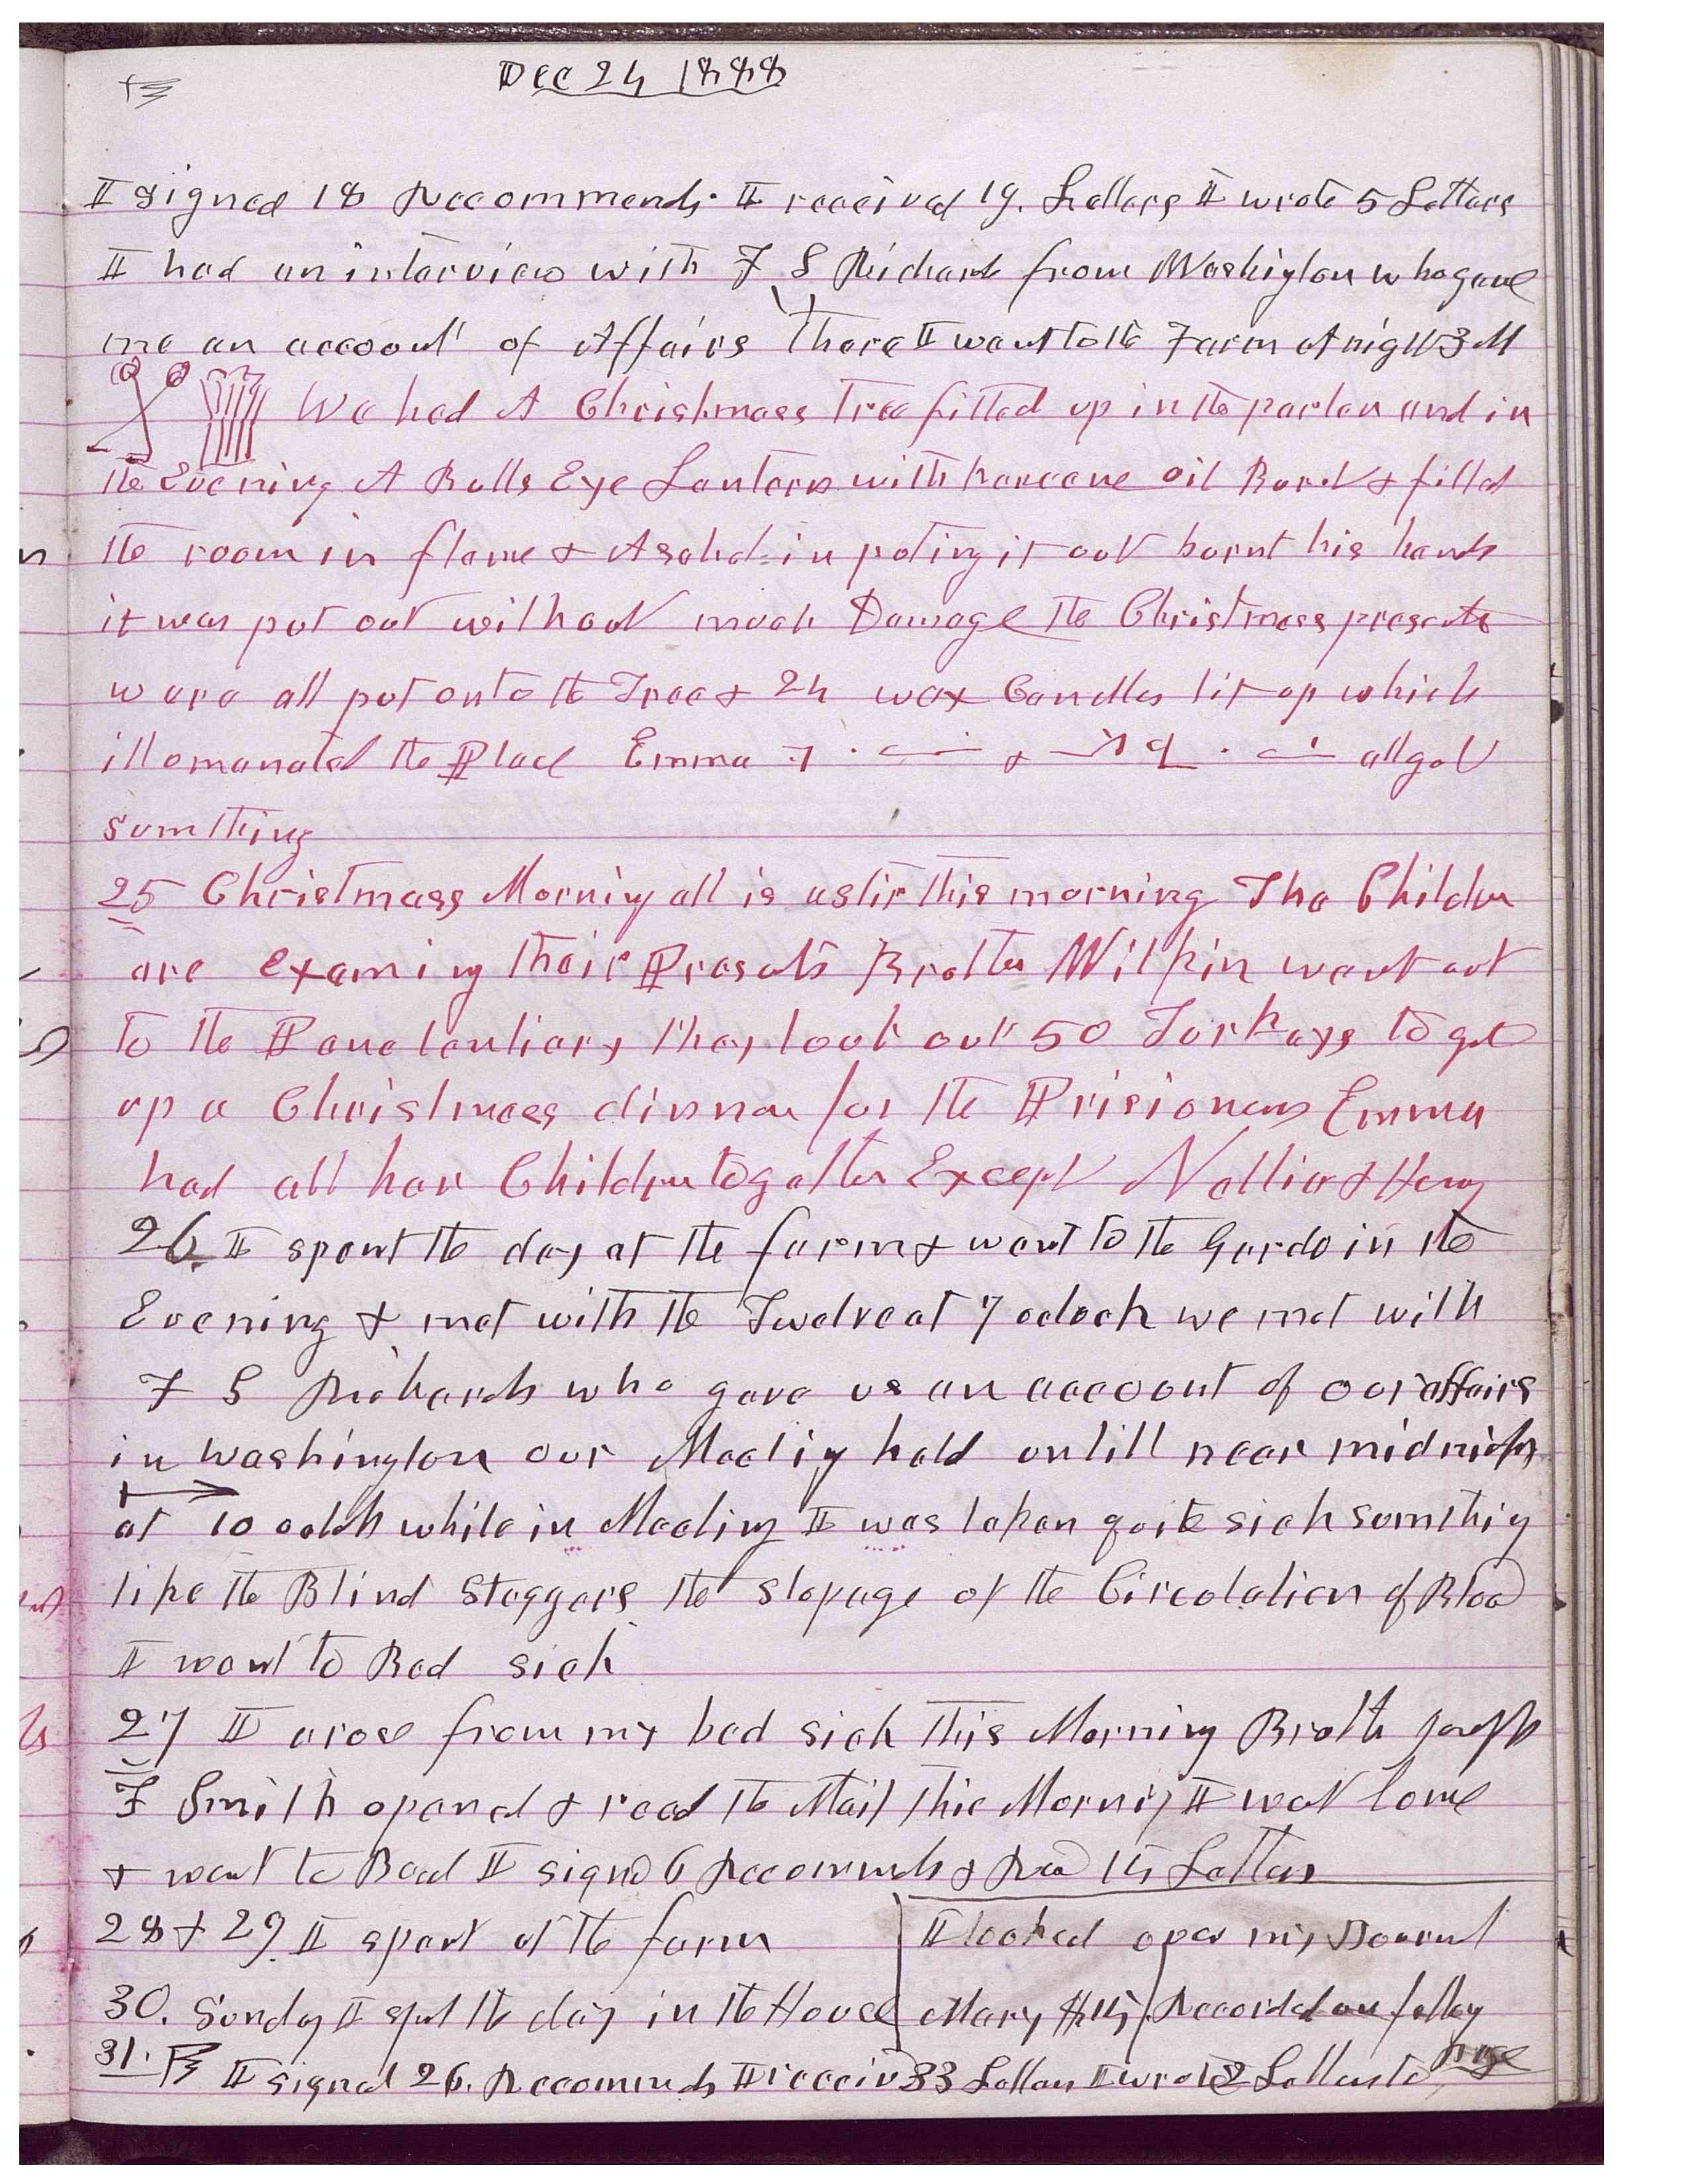 Dec 24 1888
I signed 18 Recommends. I received 19. Letters I wrote 5 Letters
I had an interview with F S Richards from Washigton who gave
me an accoout of Affairs there I went to the Farm Night 3 M
We had A Christmass tree fitted up in the parlor and in
the Evening A Bulls Eye Lantern with Karcene oil Burst & filled
the room in flame & Asahel in puting it out burnt his hands
it was put out without much Damage the Christmess presents
were all put onto the Tree & 24 wax Candles lit up which
illumanated the Place Emma all got
somthing
25 Christmass Morning all is astir this morning The Childen
are examing their Presents Brother Wilkin went out
to the Penetentiary they took out 50 Turkeys to get
up a Christmess dinner for the Prisioners Emma
had all her Children together Except Nellie & Henry
26. I spent the day at the farm & went to the Gardo in the
Evening & met with the Twelve at 7 oclock we met with
F S Richards who gave us an account of our affairs
in Washington our Meetig held untill near midnight
at 10 oclok while in Meeting I was taken quite sick somthig
like the Blind Staggers the stopage of the Circulation of Blood
I went to Bed sick
27 I arose from my bed sick this Morning Broth Joseph
F Smith opened & read the Mail this Mornig I went home
& went to Bed I signed 6 Recommends & Recd 14 Letters
28 & 29. I spent at the farm
30. Sunday I spent the day in the House
I looked over my Journal
Mary Recorded on following
page
31. I signed 26. Recommends I receivd 33 Letters I wrote 2 Letters to